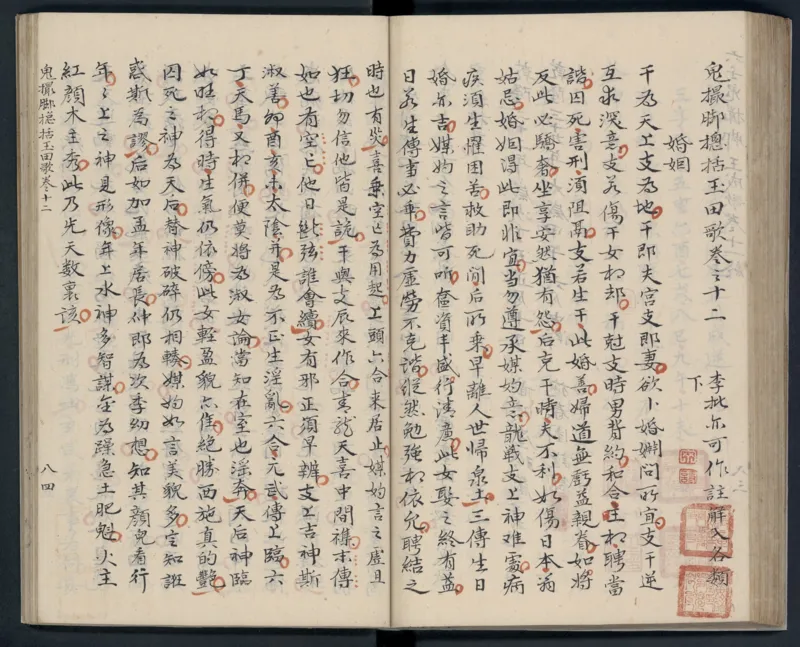 鬼撮脚摠括玉田歌卷之十二 李批亦可作註解入各類
婚姻 下
干為天上支為地干即夫宮支即妻欲卜婚姻問所宜支干逆
互求深意支若傷干女相却干尅支時男背約和合主相聘當
諧囚死害刑須阻隔支若生干此婚善婦道無虧益親眷如將
反此必驕奢坐享安然猶有怨后克干時夫不利如傷日本翁
姑忌婚姻得此即非宜當勿遵承媒妁意龍戰支上神難處病
疾須生懼困善救助死閑后所乘早離人世歸泉土三傳生日
婚亦吉媒妁之言皆可听奩資丰盛行清廉此女娶之終有益
日若生傳當必乖費力虛勞不克諧縱然勉強相依允聘結之
八三
時也有災喜乗空亡為用起上頭六合来居止媒妁言之虛且
狂切勿信他皆是謊干與支辰来作合青龍天喜中間襍末傳
如也有空亡他日断弦誰會續女有邪正須早辨支上吉神斯
淑善卯酉亥未太陰并是為不正生淫亂六合元武傳上臨六
丁天馬又相併便童將為淑女論當知在室也淫奔天后神臨
如旺相得時生氣仍依傍此女輕盈貌亦佳絶勝西施真的艷
囚死之神為天后替神破碎仍相輳媒妁如言美貌多定知誑
惑斯為謬后如加孟年居長仲即為次季幼想知其顏皃看行
年年上之神見形像年上水神多智謀金為躁急土肥魁火主
紅顏木主秀此乃先天數裏該
鬼撮脚摠括玉田歌卷之十二
八四